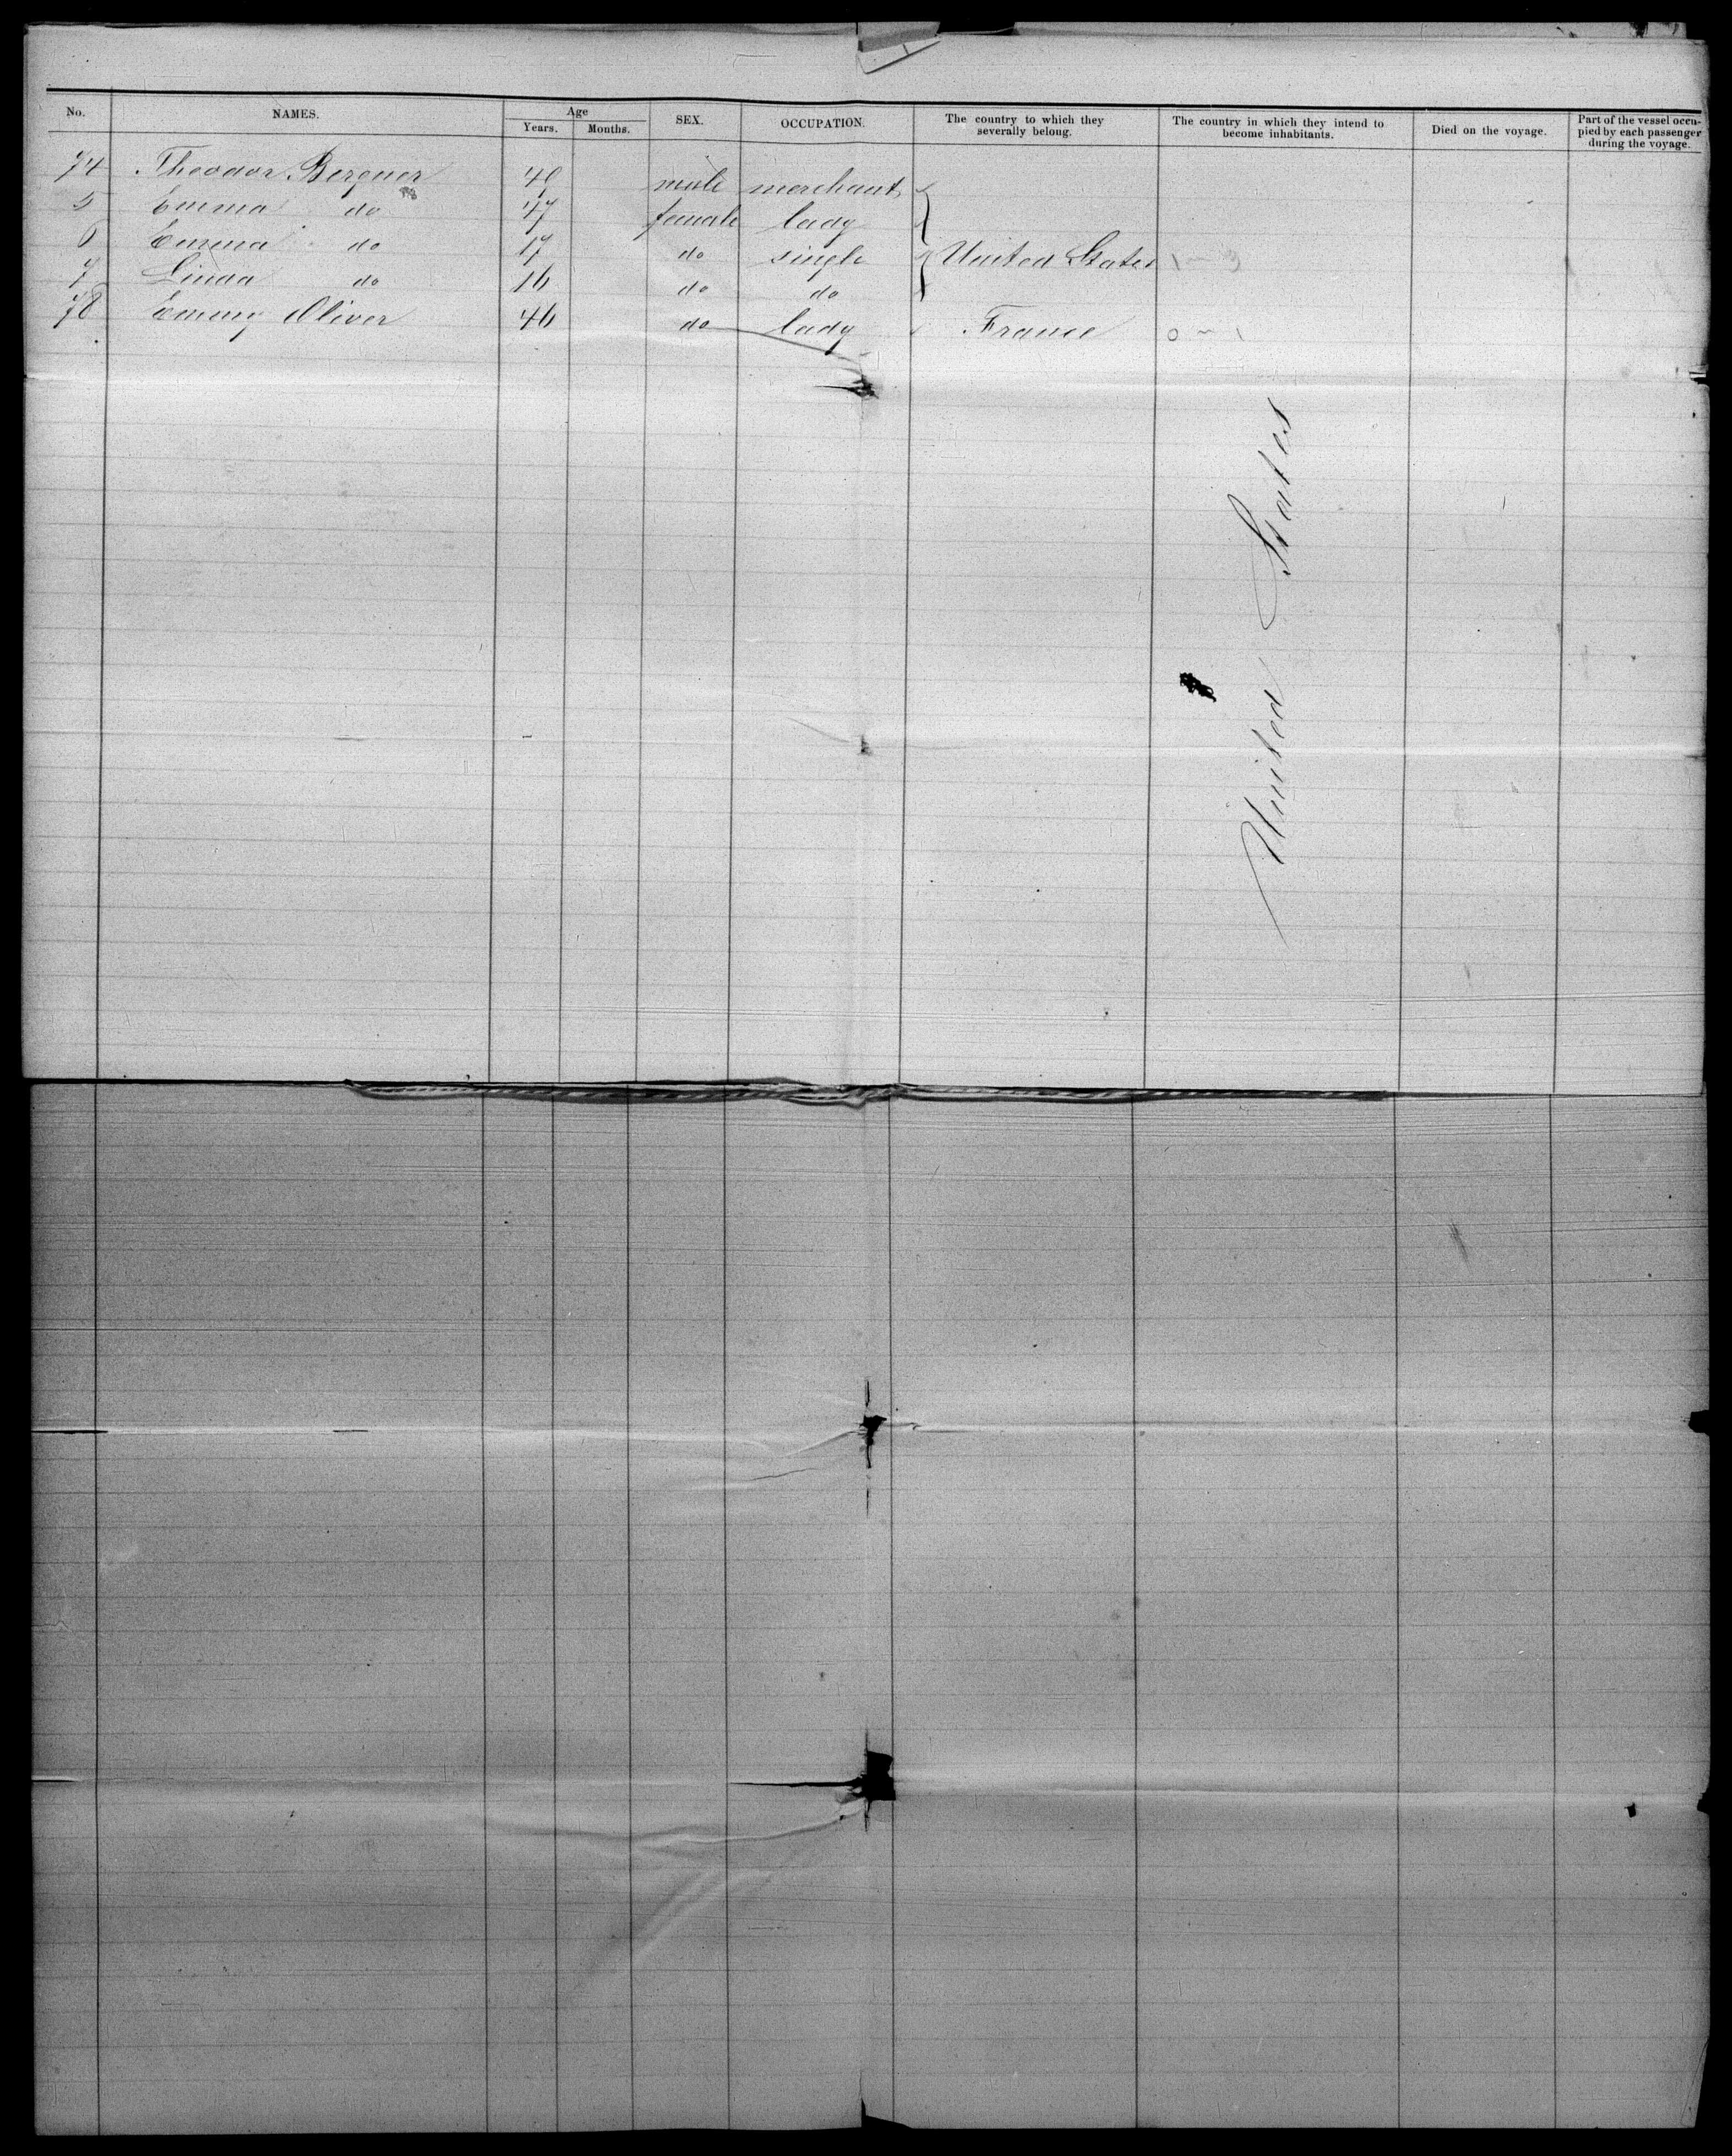 No. NAMES. Age SEX. OCCUPATION. The country to which they severally belong. The country in which they intend to become inhabitants. Died on the voyage. Part of the vessel occupied by each passenger during the voyage.
Years. Months.
74 Theodor Bergner male merchant
5 Emma do 47 female lady
6 Emma do 17 do single United States 1 ~ 3
7 Linda do 16 do do
78 Emmy Oliver 46 do lady France 0 ~ 1
United States